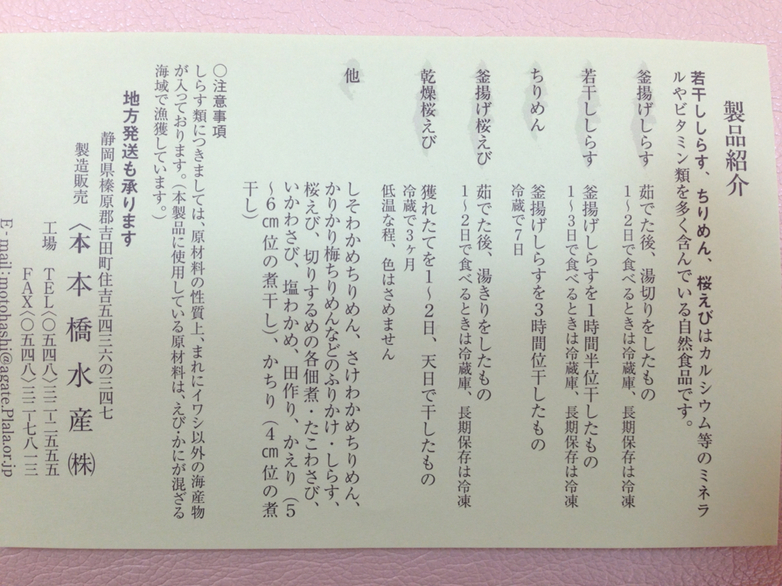 製品紹介
若干ししらす、ちりめん、桜えびはカルシウム等のミネラ
ルやビタミン類を多く含んでいる自然食品です。
釜揚げしらす　茹でた後、湯切りをしたもの
1〜2日で食べるときは冷蔵庫、長期保存は冷凍
若干ししらす　釜揚げしらすを1時間半位干したもの
1〜3日で食べるときは冷蔵庫、長期保存は冷凍
ちりめん　釜揚げしらすを3時間位干したもの
冷蔵で7日
釜揚げ桜えび　茹でた後、湯きりをしたもの
1〜2日で食べるときは冷蔵庫、長期保存は冷凍
乾燥桜えび　獲れたてを1〜2日、天日で干したもの
冷蔵で3ヶ月
低温な程、色はさめません
他　しそわかめちりめん、さけわかめちりめん、
かりかり梅ちりめんなどのふりかけ・しらす、
桜えび、切りするめの各佃煮・たこわさび、
いかわさび、塩わかめ、田作り、かえり（5
〜6㎝位の煮干し）、かちり（4㎝位の煮
干し）
○注意事項
しらす類につきましては、原材料の性質上、まれにイワシ以外の海産物
が入っております。（本製品に使用している原材料は、えび・かにが混ざる
海域で漁獲しています。）
地方発送も承ります
静岡県榛原郡吉田町住吉五四三六の三四七
製造販売　〈本 本橋水産㈱
工場　TEL〈〇五四八〉三二ー二五五五
FAX〈〇五四八〉三二ー七八一三
E-mail:motohashi@agate.Plala.or.jp